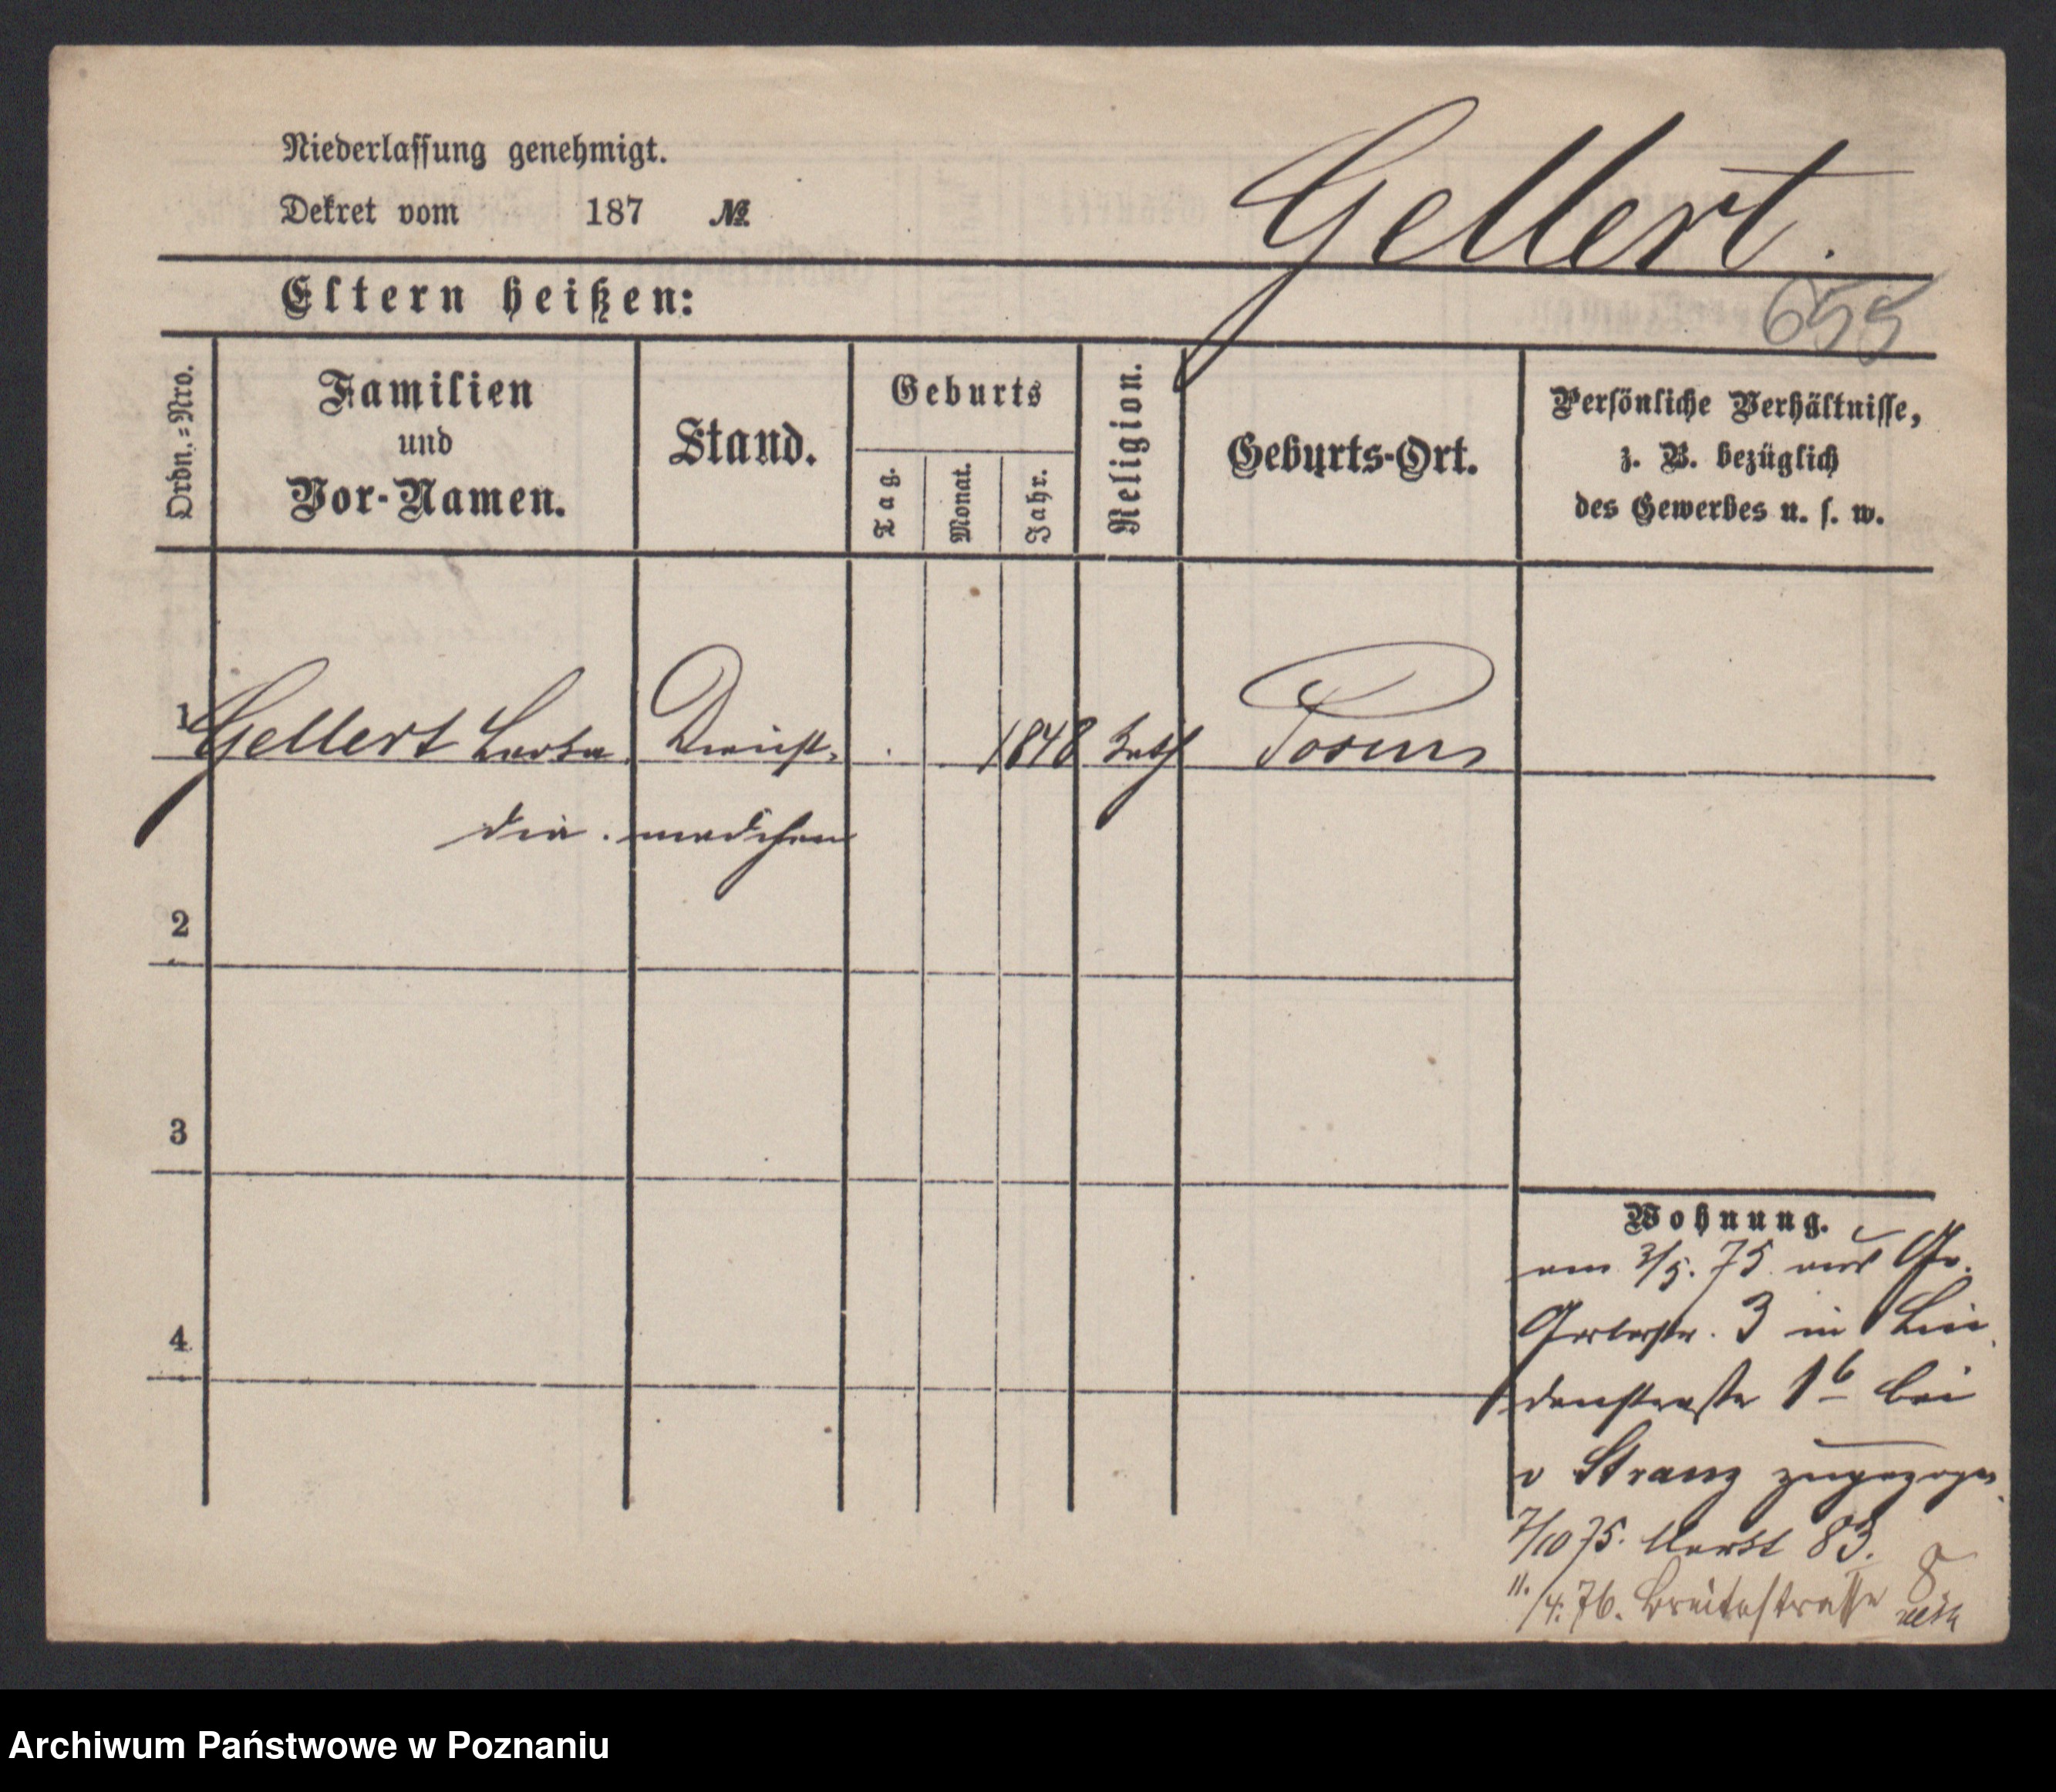 Niederlassung genehmigt.
Dekret vom 187 №
Gellert.
Eltern heißen:
655
Ordn.=Nro.
Familien
und
Vor-Namen.
Stand.
Geburts
Tag.
Monat.
Jahr.
Religion.
Geburts-Ort.
Persönliche Verhältnisse,
z. B. bezüglich
des Gewerbes u. s. w.
1 Gellert Leoka Dienst- 1848 kath Posen
dia. mädchen
2
3
4
Wohnung.
am 3/5. 75 aus Gr.
Gerberstr. 3 in Lin
denstraße 1b bei
v Stranz zugezogen
7/10 75. Markt 83.
11./4. 76. Breitestrasse 8
Archiwum Państwowe w Poznaniu